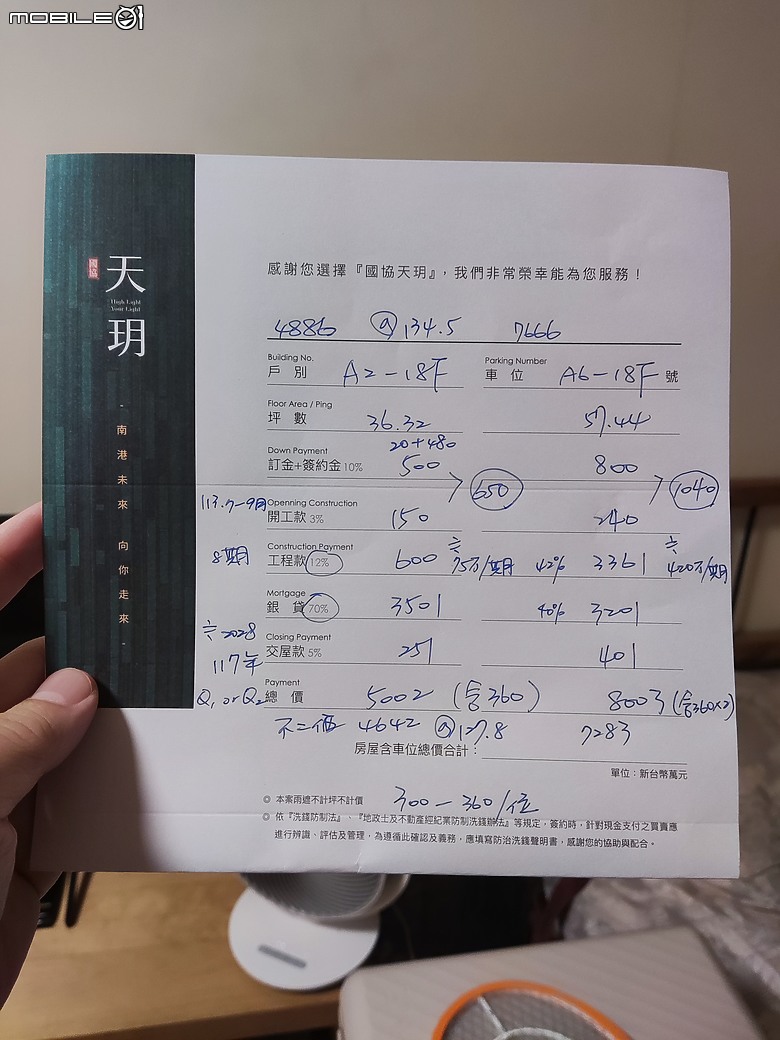 MOBILE01
國協
天玥
High Light
Your Light
- 南港未來 向你走來 -
感謝您選擇『國協天玥』，我們非常榮幸能為您服務！
4886 @134.5 7666
Building No. Parking Number
戶別 A2-18F 車位 A6-18F 號
Floor Area / Ping
坪數 36.32 57.44
20+480
Down Payment
訂金+簽約金10% 500 800
650 1040
113.7-9月
Openning Construction
開工款3% 150 240
Construction Payment
8期 工程款12% 600 75万/期 42% 3361 420万/期
Mortgage
銀貸70% 3501 40% 3201
2028
Closing Payment
117年 交屋款5% 251 401
Payment
Q1 or Q2 總價 5002 (含360) 8003 (含360×2)
不二價 4642 @127.8 7283
房屋含車位總價合計：
單位：新台幣萬元
◎ 本案雨遮不計坪不計價 300-360/位
◎ 依『洗錢防制法』、『地政士及不動產經紀業防制洗錢辦法』等規定，簽約時，針對現金支付之買賣應
進行辨識、評估及管理，為遵循此確認及義務，應填寫防治洗錢聲明書，感謝您的協助與配合。